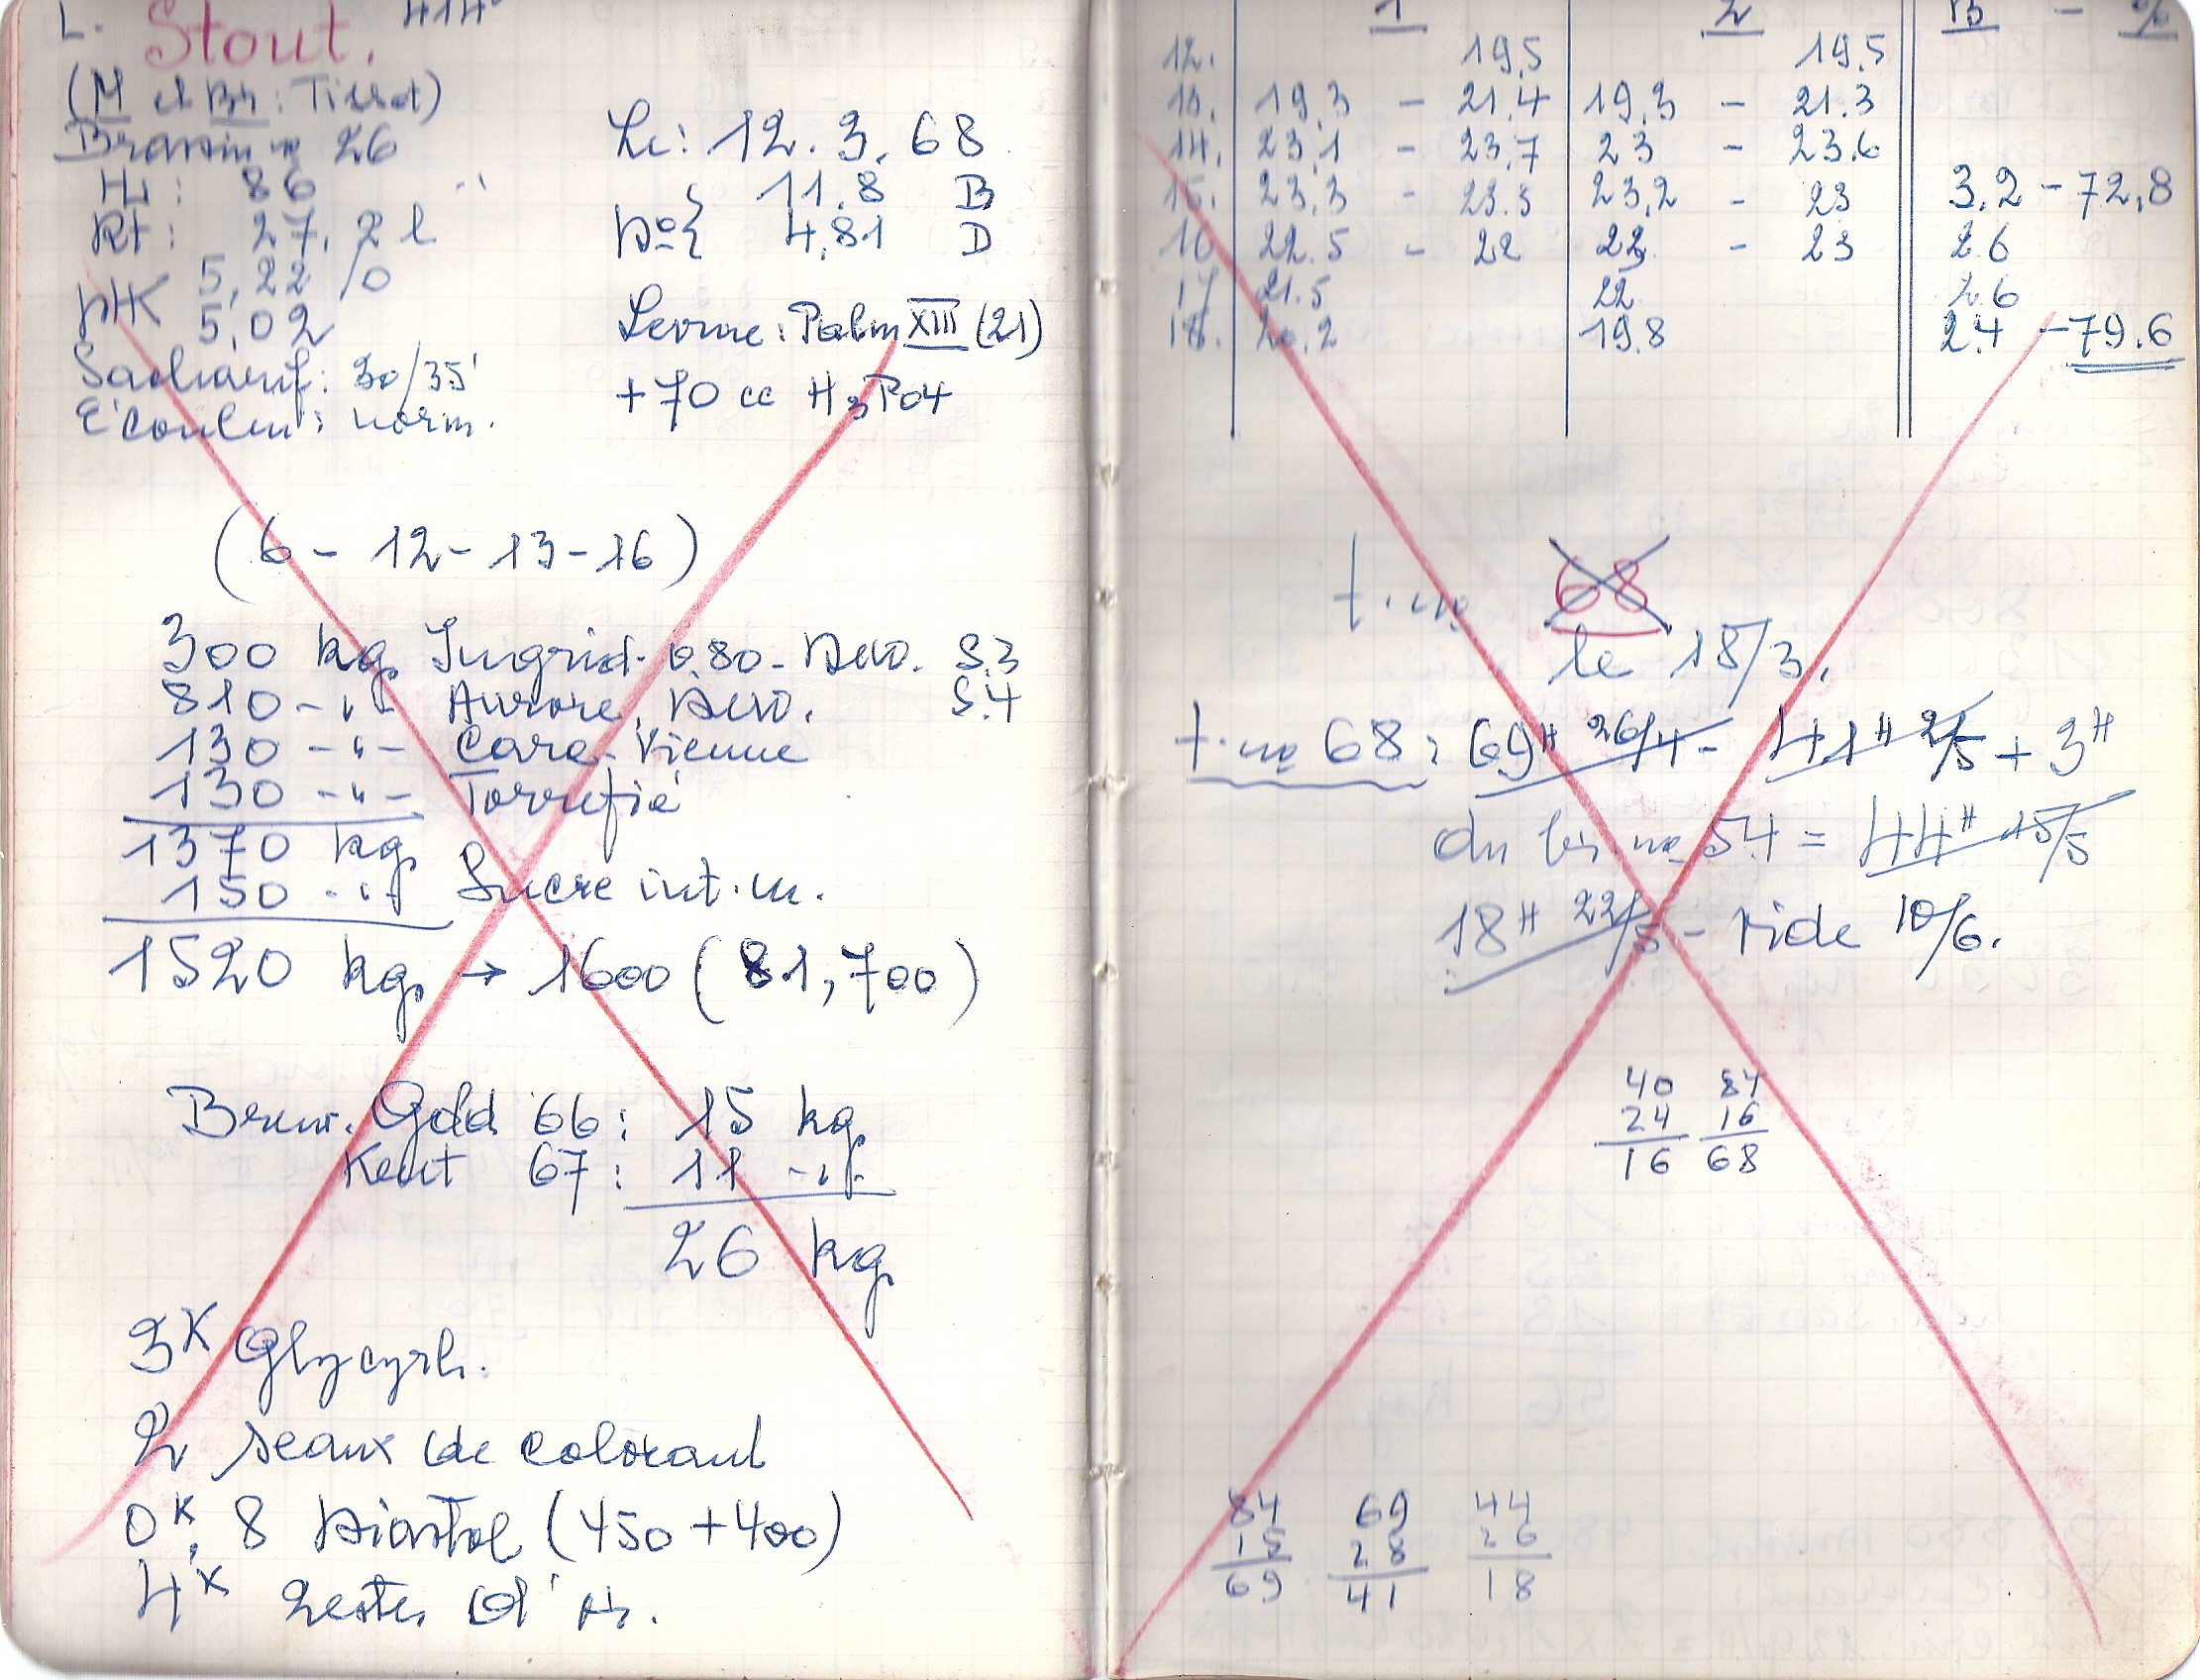 L. Stout. 414
(M et Br: Tissot)
Brassin no 26
HL: 86
Rt: 27,2 l
pH 5,22 /0
5,02
Sacharif: 30/35'
Ecoulem: norm.
Le: 12.3.68
Do{ 11.8 B
4,81 D
Levure: Palm XIII (21)
+70 cc H3PO4
(6 - 12 - 13 - 16)
300 kg Ingrid. 0,80 - S.3
810 -"- Aurore. S.4
130 -"- Cara-Vienne
130 -"- Torrefié
1370 kg
150 -"- Sucre int. m.
1520 kg → 1600 (81,700)
Brew. Gold 66: 15 kg
Kent 67: 11 -"-
26 kg
3K Glycyrh.
2 seaux de colorant
0K,8 Diastol (450+400)
4K zestes d'or.
1 2 B - %
12. 19,5 19.5
13. 19,3 - 21.4 19,3 - 21.3
14. 23,1 - 23,7 23 - 23.6
15. 23,3 - 23.3 23,2 - 23 3,2 - 72,8
16 22.5 - 22 22 - 23 2.6
17 21.5 22 2.6
18. 20,2 19.8 2.4 - 79.6
t. no 68
le 18/3.
t. no 68: 69H 26/4 - 41H 2/5 + 3H
du br. no 54 = 44H 15/5
18H 22/5 - vide 10/6.
40 84
24 16
16 68
84 69 44
15 28 26
69 41 18